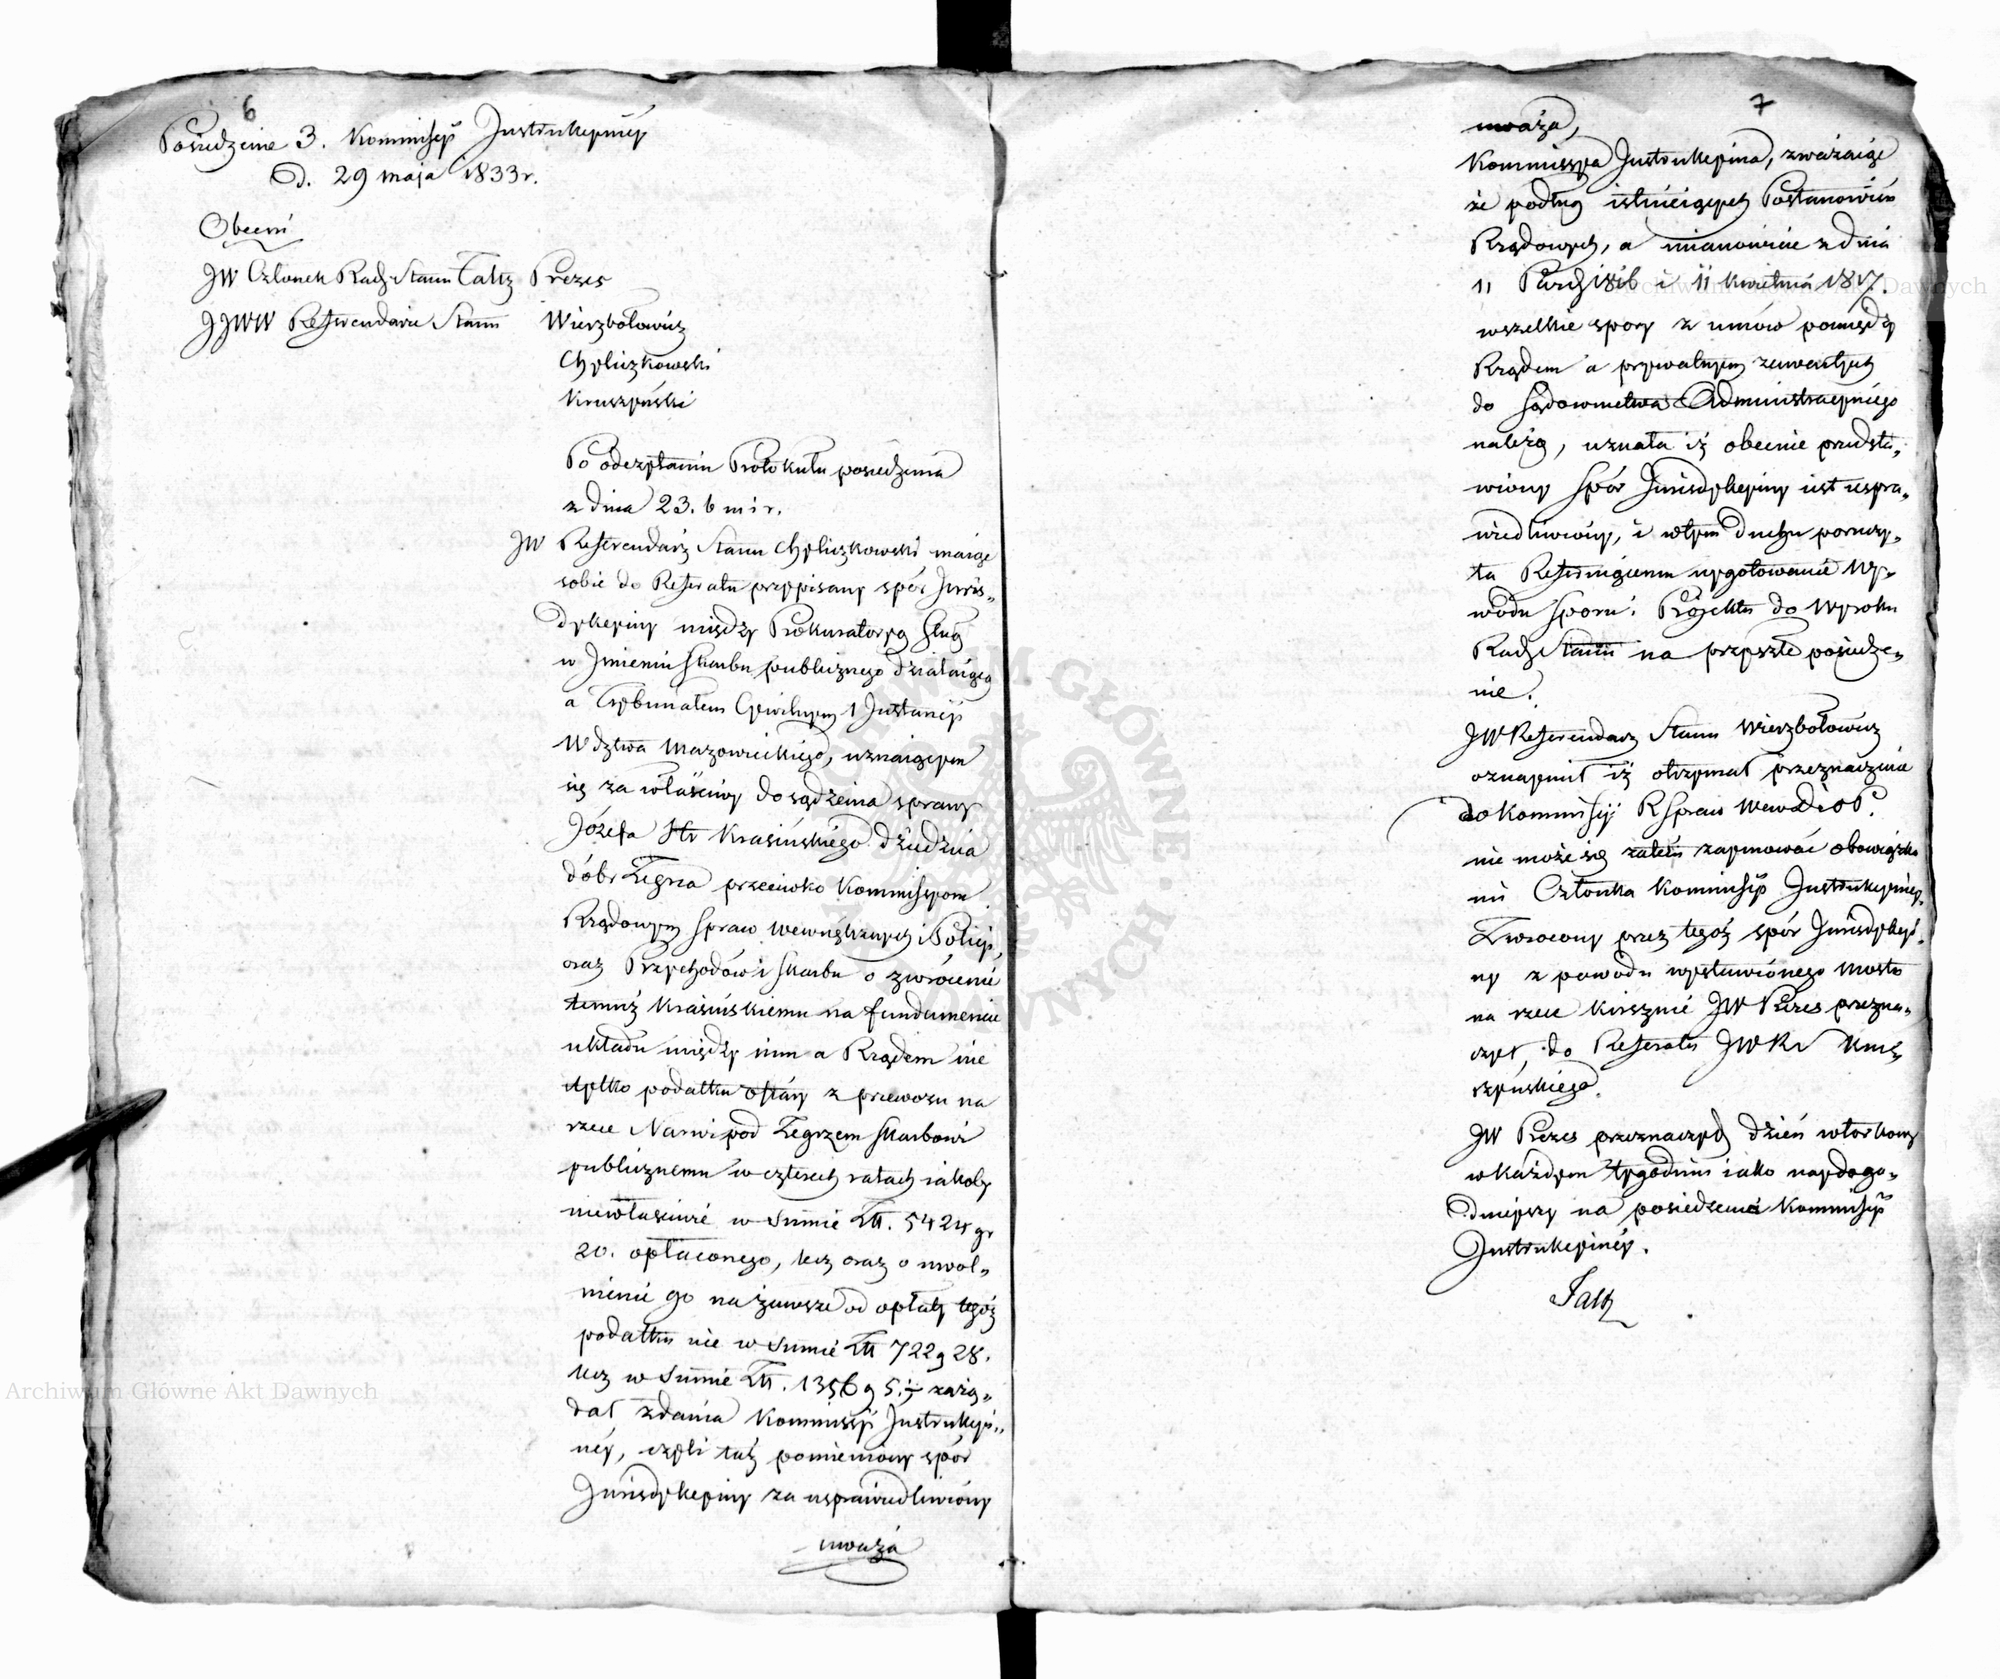 6
Posiedzenie 3. Kommissyi Instrukcyiney
D. 29 maja 1833 r.
Obecni
JW Członek Rady Stanu Faltz Prezes
JJWW Referendarze Stanu Wierzbołowicz
Chyliczkowski
Kruszyński
Po odczytaniu Protokułu posiedzenia
z dnia 23. b m i r.
JW Referendarz Stanu Chyliczkowski maiąc
sobie do Referatu przypisany spór Juris„
dykcyiny między Prokuratoryą
w Jmieniu Skarbu publicznego działaiącą
a Trybunałem Cywilnym 1 Instancyi
Wdztwa Mazowieckiego, uznaiącym
się za właściwy do sądzenia sprawy
Józefa Hr Krasińskiego dziedzica
dóbr Zegrza przeciwko Kommissyom
Rządowym Spraw Wewnętrznych i Policyi,
oraz Przychodów i Skarbu o zwrócenie
temuż Krasińskiemu na fundamencie
układu między nim a Rządem nie
tylko podatku ofiary z przewozu na
rzece Narwi pod Zegrzem Skarbowi
publicznemu w czterech ratach iakoby
niewłaściwie w Summie Zł. 5424 gr
20. opłaconego, lecz oraz o uwol„
nienie go na zawsze od opłaty tegoż
podatku nie w Summie Zł 722 g 28.
lecz w Summie Zł. 1356 g 5. zażą„
dał zdania Kommissyi Instrukcyi„
ney, czyli taż pomieniony spór
Jurisdykcyiny za usprawiedliwiony
uważa
7
uważa,
Kommissya Instrukcyina, zważaiąc
że podług istnieiących Postanowień
Rządowych, a mianowicie z dnia
11 Paźdz 1816 i 11 kwietnia 1817.
wszelkie spory z umów pomiędzy
Rządem a prywatnym zawartych
do Sądownictwa Administracyinego
należą, uznała iż obecnie przedsta„
wiony spór Jurisdykcyiny iest uspra„
wiedliwiony, i w tym duchu poruczy„
ła Referuiącemu ugotowanie Wy„
wodu Sporu i Projektu do Wyroku
Rady Stanu na przyszłe posiedze„
nie.
JW Referendarz Stanu Wierzbołowicz
oznaymił iż otrzymał przeznaczenie
do Kommissyi R Spraw Wew D i O P.
nie może się zatem zaymować obowiązka
mi Członka Kommissyi Instrukcyiney.
Zwrocony przez tegoż spór Jurisdykcyi„
ny z powodu wystawionego Mostu
na rzece JW Prezes przezna„
czył do Referatu JW Rs Kru„
szyńskiego.
JW Prezes przeznaczył dzień wtorkowy
w każdym tygodniu iako naydogo„
dnieyszy na posiedzenia Kommissyi
Instrukcyiney.
Faltz
Archiwum Główne Akt Dawnych
Archiwum Główne Akt Dawnych
ARCHIWUM GŁÓWNE AKT DAWNYCH